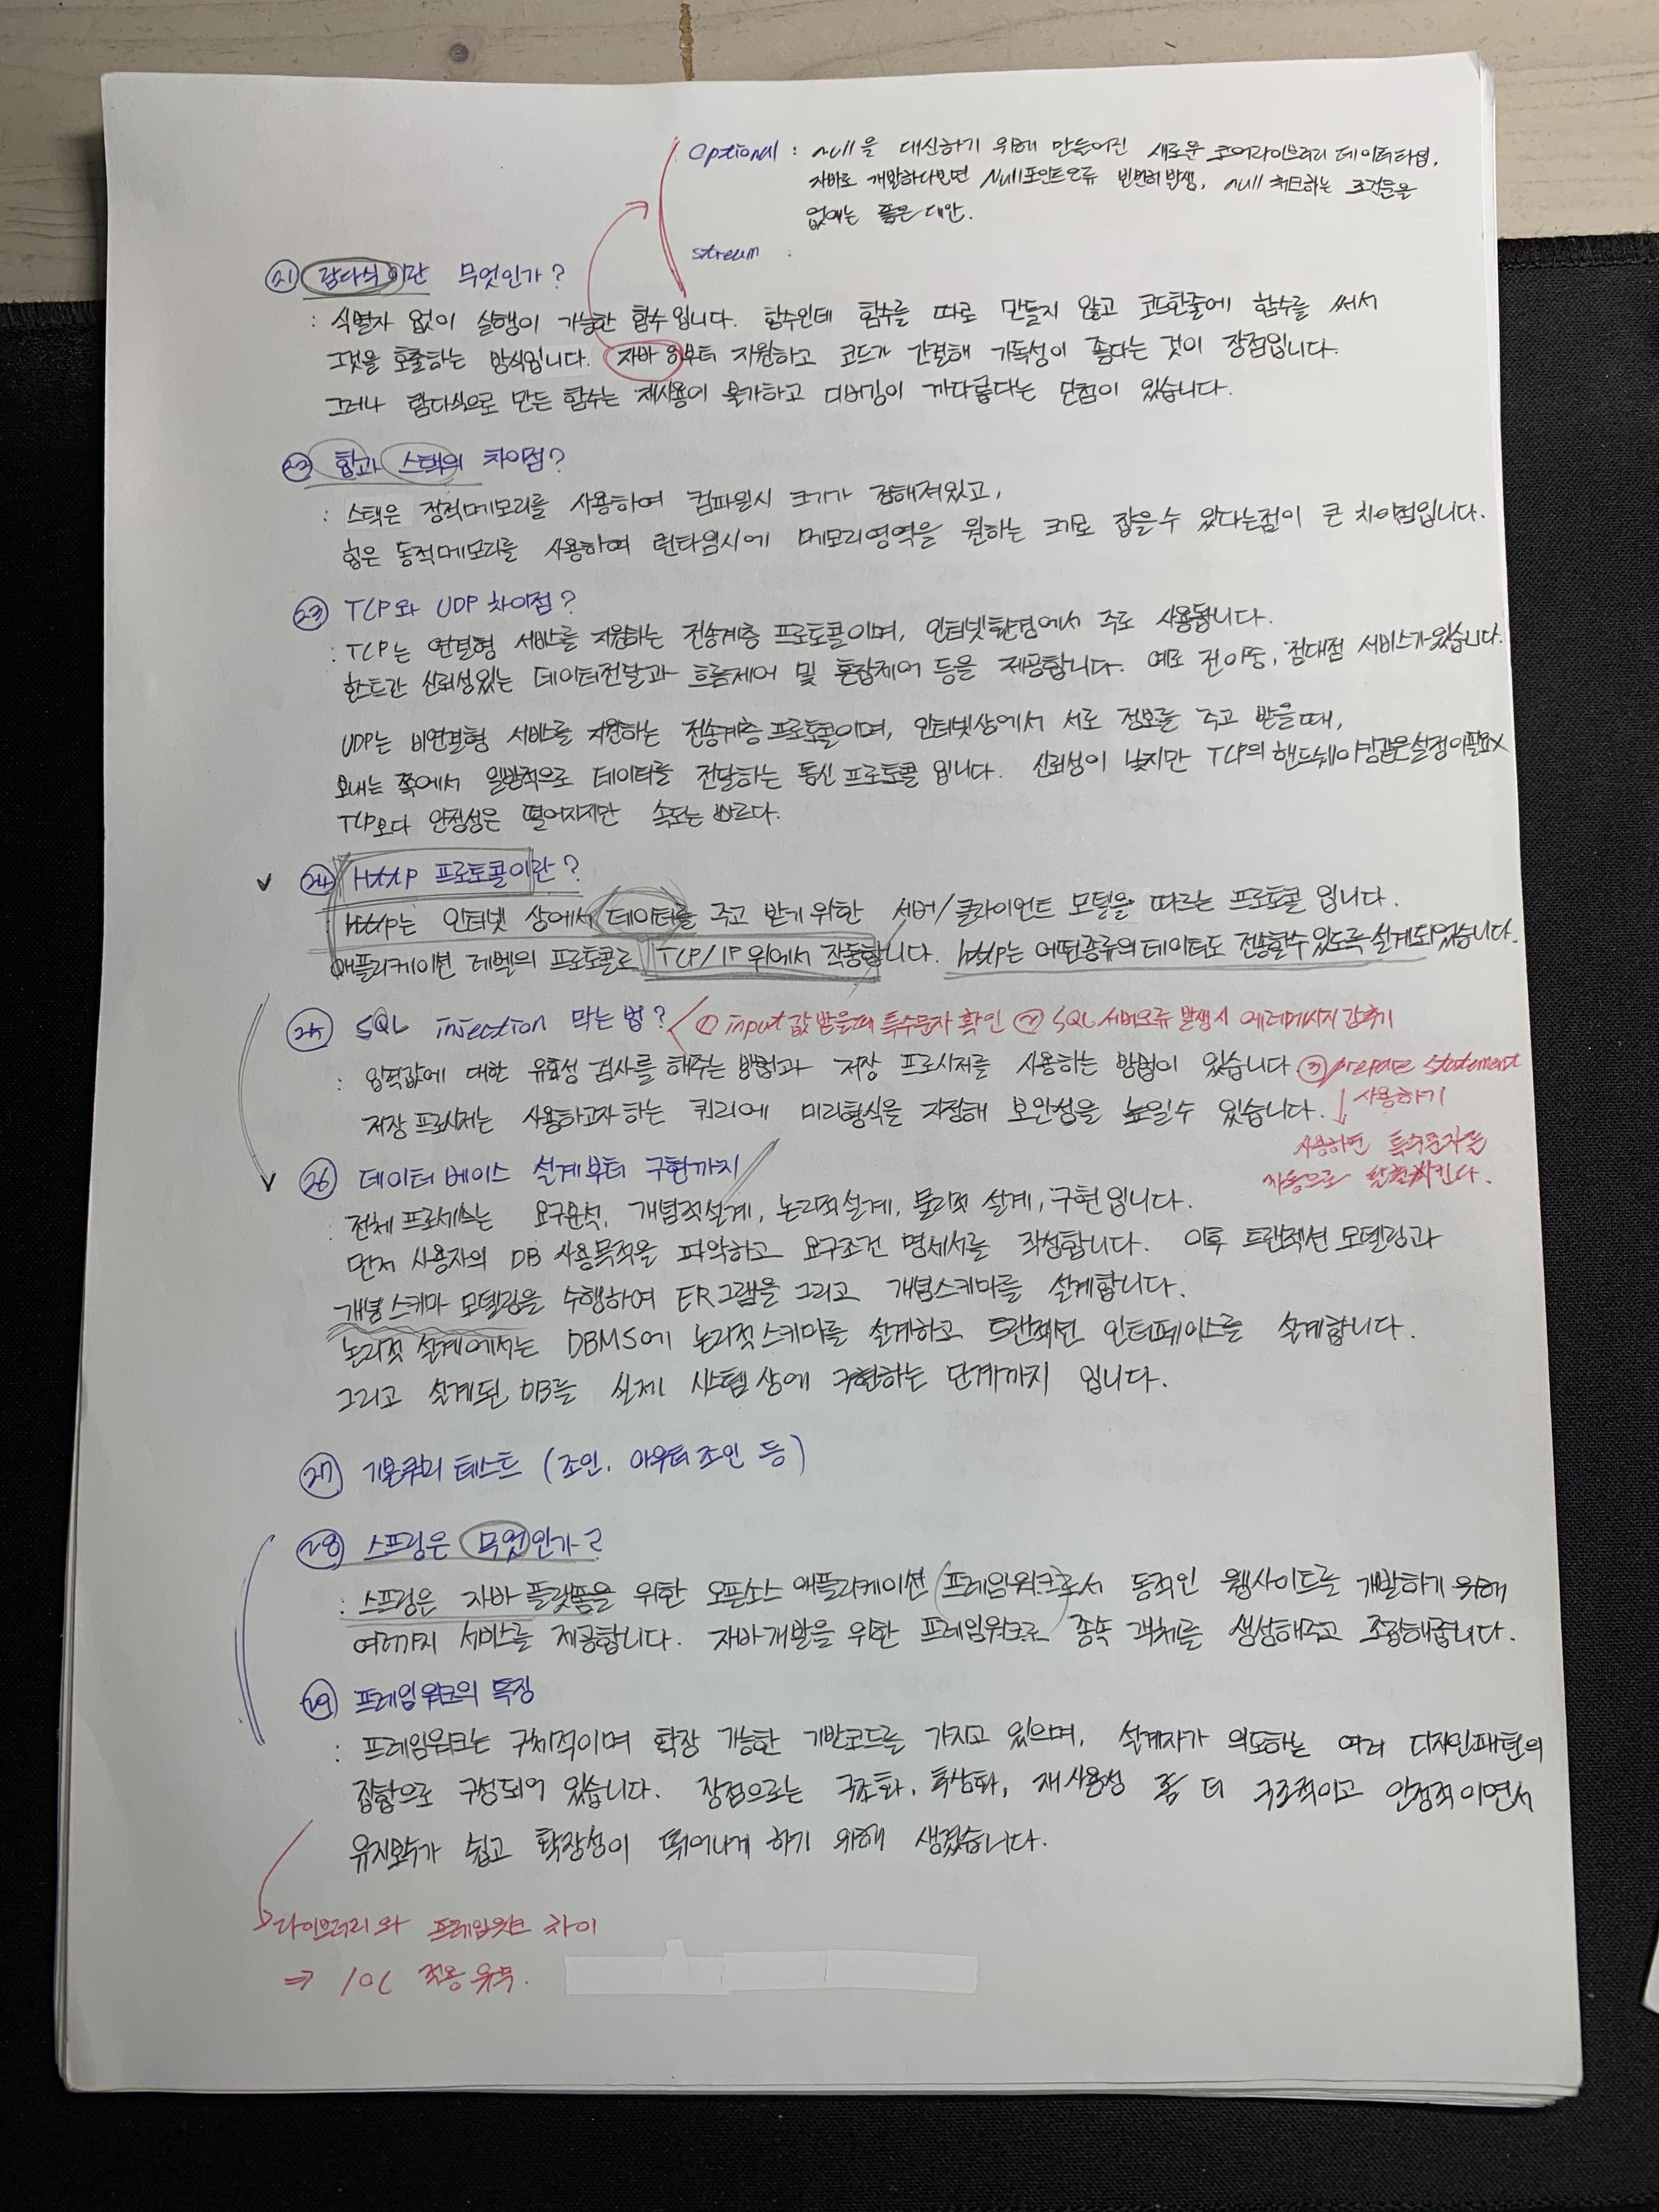 Optional : null을 대신하기 위해 만들어진 새로운 코어라이브러리 데이터타입.
자바로 개발하다보면 Null포인트오류 빈번히 발생, null 체크하는 조건문을
없애는 좋은 대안.
stream :
㉑ 람다식이란 무엇인가?
: 식별자 없이 실행이 가능한 함수입니다. 함수인데 함수를 따로 만들지 않고 코드한줄에 함수를 써서
그것을 호출하는 방식입니다. 자바 8부터 지원하고 코드가 간결해 가독성이 좋다는 것이 장점입니다.
그러나 람다식으로 만든 함수는 재사용이 불가하고 디버깅이 까다롭다는 단점이 있습니다.
㉒ 힙과 스택의 차이점?
: 스택은 정적메모리를 사용하여 컴파일시 크기가 정해져있고,
힙은 동적메모리를 사용하며 런타임시에 메모리영역을 원하는 크기로 잡을수 있다는점이 큰 차이점입니다.
㉓ TCP와 UDP 차이점?
: TCP는 연결형 서비스를 지원하는 전송계층 프로토콜이며, 인터넷환경에서 주로 사용됩니다.
호스트간 신뢰성있는 데이터전달과 흐름제어 및 혼잡제어 등을 제공합니다. 예로 전이중, 점대점 서비스가있습니다.
UDP는 비연결형 서비스를 지원하는 전송계층프로토콜이며, 인터넷상에서 서로 정보를 주고 받을때,
보내는 쪽에서 일방적으로 데이터를 전달하는 통신 프로토콜 입니다. 신뢰성이 낮지만 TCP의 핸드쉐이킹같은설정이필요X
TCP보다 안정성은 떨어지지만 속도는 빠르다.
㉔ Http 프로토콜이란?
http는 인터넷 상에서 데이터를 주고 받기 위한 서버/클라이언트 모델을 따르는 프로토콜 입니다.
애플리케이션 레벨의 프로토콜로 TCP/IP 위에서 작동합니다. http는 어떤종류의 데이터도 전송할수있도록 설계되었습니다.
㉕ SQL injection 막는 법? < ① input값 받을때 특수문자 확인 ② SQL 서버오류 발생시 에러메시지 감추기
: 입력값에 대한 유효성 검사를 해주는 방법과 저장 프로시저를 사용하는 방법이 있습니다 ③ prepare statement
사용하기
저장 프로시저는 사용하고자 하는 쿼리에 미리형식을 지정해 보안성을 높일수 있습니다.
사용하면 특수문자를
자동으로
㉖ 데이터 베이스 설계부터 구현까지
: 전체 프로세스는 요구분석, 개념적설계, 논리적설계, 물리적 설계, 구현입니다.
먼저 사용자의 DB 사용목적을 파악하고 요구조건 명세서를 작성합니다. 이후 트랜젝션 모델링과
개념스키마 모델링을 수행하여 ER그램을 그리고 개념스키마를 설계합니다.
논리적 설계에서는 DBMS에 논리적스키마를 설계하고 트랜젝션 인터페이스를 설계합니다.
그리고 설계된 DB를 실제 시스템 상에 구현하는 단계까지 입니다.
㉗ 기본쿼리 테스트 (조인, 아우터 조인 등)
㉘ 스프링은 무엇인가?
: 스프링은 자바 플랫폼을 위한 오픈소스 애플리케이션 프레임워크로서 동적인 웹사이트를 개발하기 위해
여러가지 서비스를 제공합니다. 자바개발을 위한 프레임워크로 종속 객체를 생성해주고 조립해줍니다.
㉙ 프레임워크의 특징
: 프레임워크는 구체적이며 확장 가능한 기반코드를 가지고 있으며, 설계자가 의도하는 여러 디자인패턴의
집합으로 구성되어 있습니다. 장점으로는 구조화, 추상화, 재사용성 좀 더 구조적이고 안정적이면서
유지보수가 쉽고 확장성이 뛰어나게 하기 위해 생겼습니다.
라이브러리와 프레임워크 차이
⇒ IOC 적용 유무.